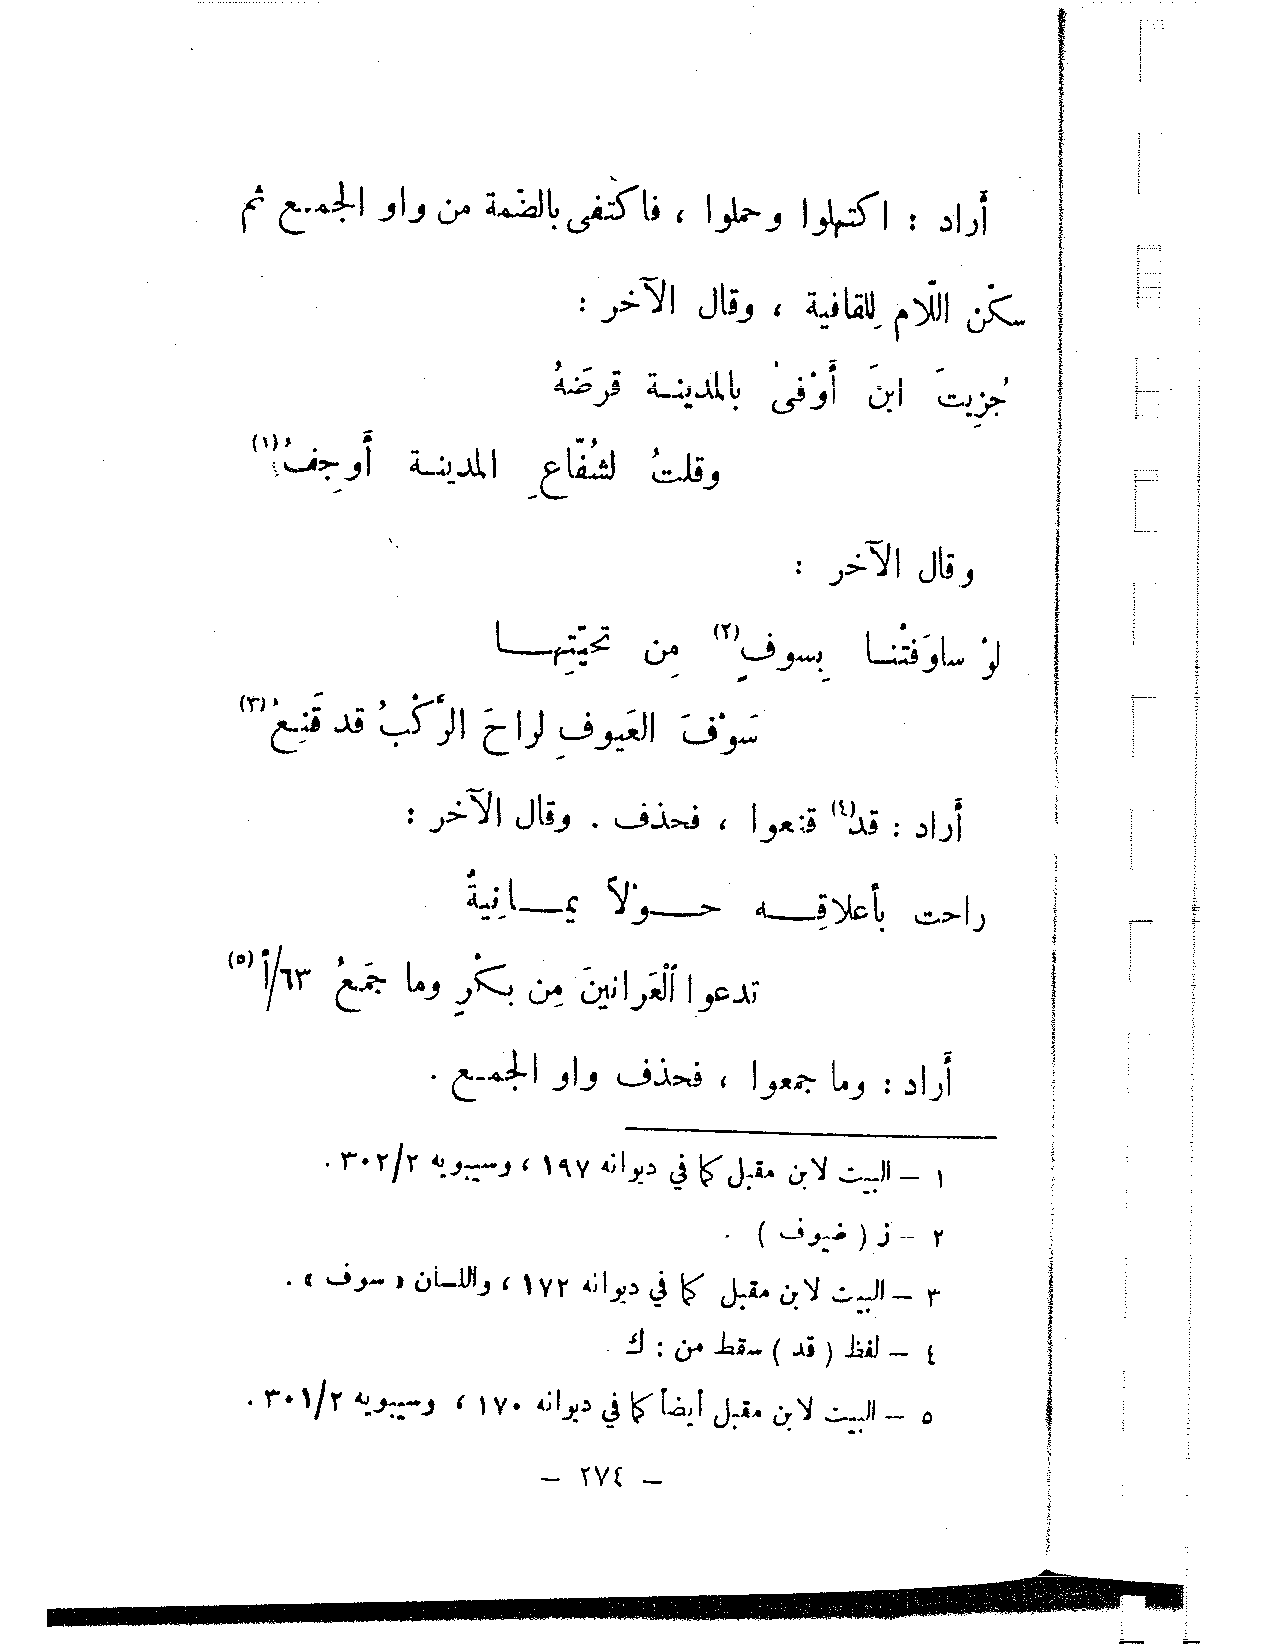 أراد : اكتهلوا وحملوا ، فاكتفى بالضّمة من واو الجمـع ثم
سكّن اللّام لِلقافية ، وقال الآخر :
جُزِيتَ ابنَ أَوْفىٰ بالمدينـة قرضَهُ
وقلتُ لشُفّاعِ المدينـة أَوجِفُ(١)
وقال الآخر :
لوْ ساوَفتْنـا بِسوفٍ(٢) مِن تحيّتِهـا
سَوْفَ العَيوفِ لراحَ الرَّكْبُ قد قَنِعُ(٣)
أراد : قد(٤) قنعوا ، فحذف . وقال الآخر :
راحت بأعلاقِـه حـوْلاً يمـانِيةٌ
تدعوا ٱلْعَرانينَ مِن بكْرٍ وما جَمَعُ ٦٣/أ (٥)
أراد : وما جمعوا ، فحذف واو الجمـع .
١ – البيت لابن مقبل كما في ديوانه ١٩٧ ، وسيبويه ٣٠٢/٢ .
٢ – ز ( ضيوف ) .
٣ – البيت لابن مقبل كما في ديوانه ١٧٢ ، واللسان « سوف » .
٤ – لفظ ( قد ) سقط من : ك
٥ – البيت لابن مقبل أيضاً كما في ديوانه ١٧٠ ، وسيبويه ٣٠١/٢ .
– ٢٧٤ –